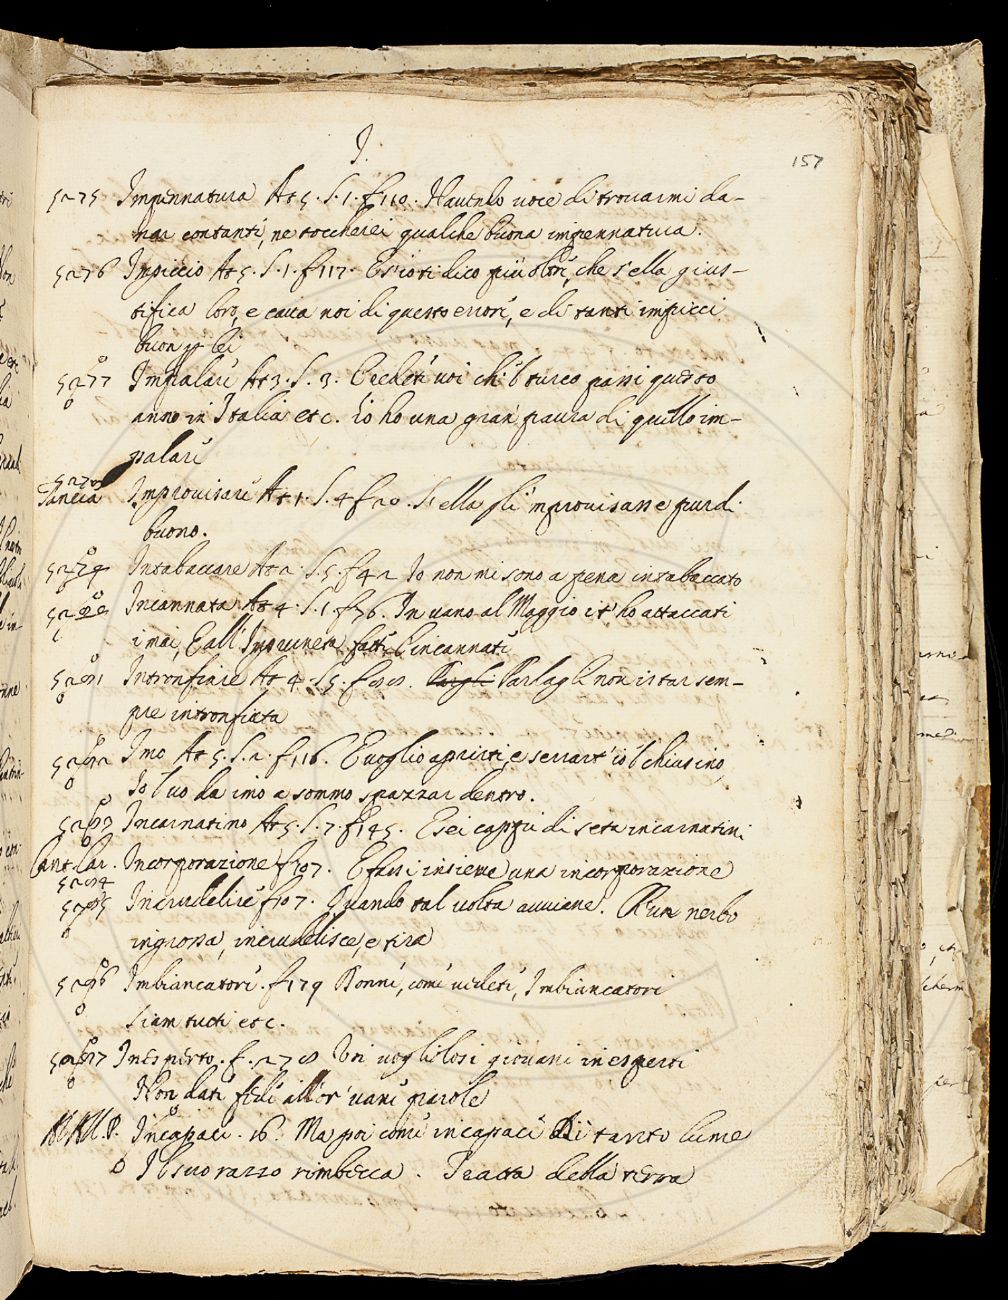 I.
157
5275 Impennatura At 5. S. 1. f 110. Havendo voce di trouarmi da-
nar contanti, ne toccherei qualche buona impennatura.
5276 Impiccio At 5. S. 1. f 117. E s'io ti dico più oltre, che s'ella gius-
tifica loro, e cava noi di questo errore, e di tanti impicci
buon p lei
5277 Impalare At 3. S. 3. Credete voi ch'l turco passi questo
anno in Italia etc. Io ho una gran paura di quello im-
palare
5278
Tancia Improvisare At 1. S. 4 f 20. S'ella gl'improvisasse pur di
buono.
5279 Intabaccare At 2. S. 5. f 42 Io non mi sono a pena intabaccato
5280 Incannata At 4. S. 1 f 76. In vano al Maggio it'ho attaccati
i mai, E all'Impruneta fatti l'incannati
5281 Intronfiare At 4. S 5. f 98. Parlagli non istar sem-
pre intronfiata
5282 Imo At 5. S. 2. f 116. E voglio aprirti, e serrart' io 'l chiusino,
Io l vo da imo a sommo spazzar dentro.
5283 Incarnatino At 5. S. 7. f 145. E sei cappi di seta incarnatini
Cant. Car. Incorporazione f 107. E fassi insieme una incorporazione
5284
5285 Incrudelire f 107. Quando tal volta avviene. Ch'un nerbo
ingrossa, incrudelisce, e tira
5286 Imbiancatore. f 179 Donne, come vedete, Imbiancatori
siam tutti etc.
5287 Inesperto. f. 278 Voi vogliolosi giovani inesperti
Non date fede all'or vane parole
Incapace. 16. Ma poi come incapace di tanto lume
Il suo razzo rimbecca. Tratta della terra